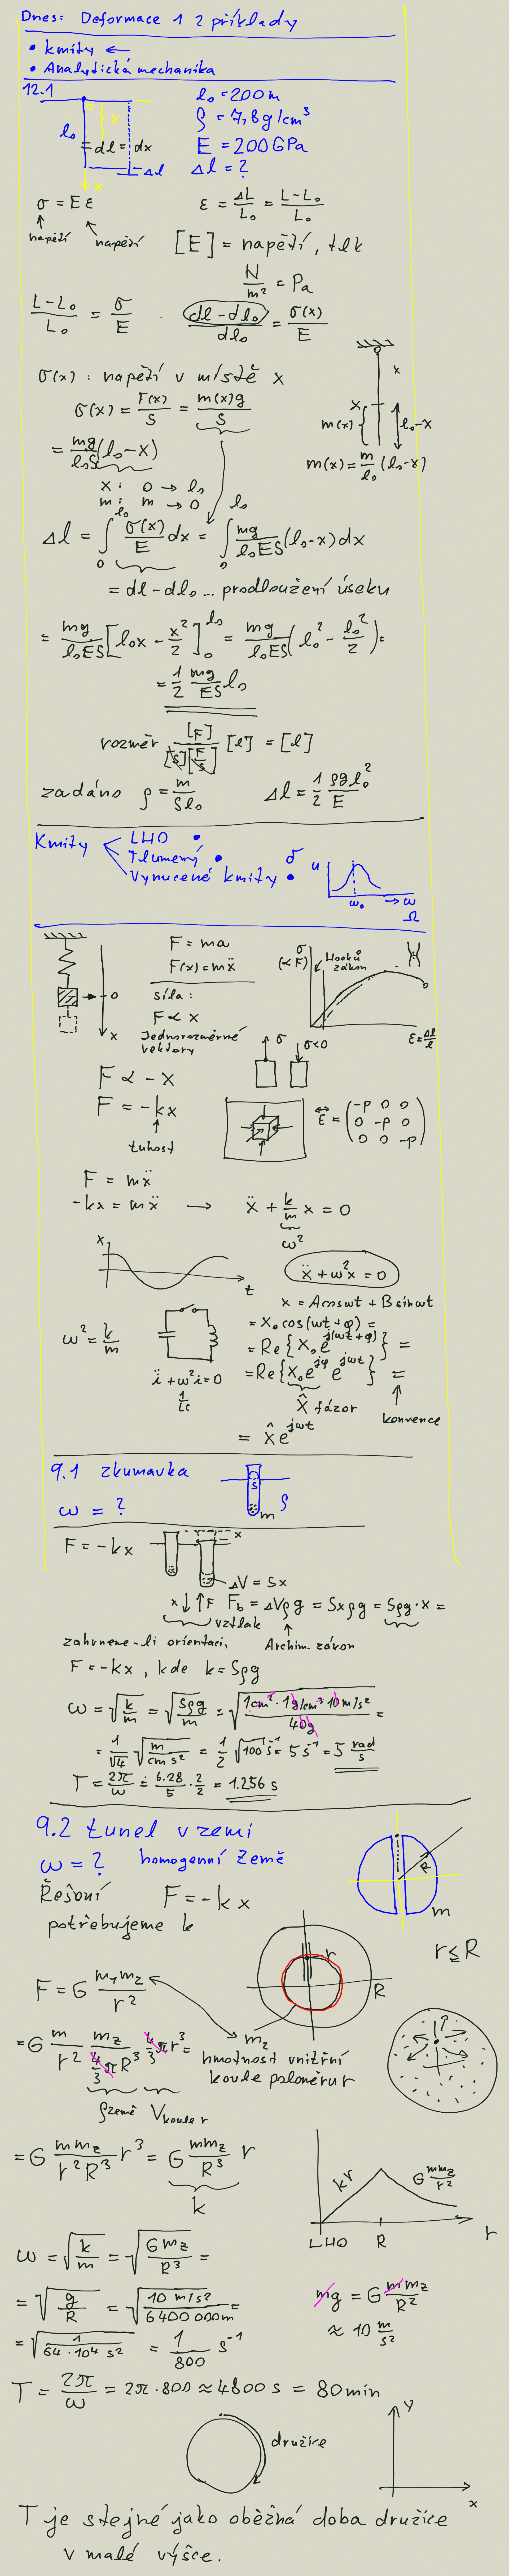 Dnes: Deformace 1 2 příklady
• Kmity ←
• Analytická mechanika
12.1
l₀ = 200 m
ρ = 7,8 g/cm³
E = 200 GPa
Δl = ?
l₀ x dl = dx Δl
x
σ = E ε
ε = ΔL/L₀ = (L-L₀)/L₀
napětí napětí
[E] = napětí, tlk
N/m² = Pa
(L-L₀)/L₀ = σ/E . (dl-dl₀)/dl₀ = σ(x)/E
σ(x): napětí v místě x
σ(x) = F(x)/S = m(x)g/S
= mg/(l₀S) (l₀-x)
x
x m(x) l₀-x
m(x) = m/l₀ (l₀-x)
x: 0 → l₀
m: m → 0
Δl = ∫₀^l₀ σ(x)/E dx = ∫₀^l₀ mg/(l₀ES) (l₀-x)dx
= dl-dl₀ ... prodloužení úseku
= mg/(l₀ES) [l₀x - x²/2]₀^l₀ = mg/(l₀ES) (l₀² - l₀²/2) =
= 1/2 mg/(ES) l₀
rozměr [F]/([S][F/S]) [l] = [l]
zadáno ρ = m/(Sl₀) Δl = 1/2 ρgl₀²/E
Kmity
LHO •
Tlumený •
Vynucené kmity •
u ω₀ → ω Ω
0
x
F = ma
F(x) = mẍ
síla:
F ∝ x
Jednorozměrné
vektory
σ
(∝ F)
Hookův
zákon
ε = Δl/l
F ∝ -x
F = -kx
tuhost
σ σ<0
ε = (-p 0 0
0 -p 0
0 0 -p)
F = mẍ
-kx = mẍ → ẍ + k/m x = 0
ω²
x t
ẍ + ω²x = 0
x = A cos ωt + B sin ωt
= X₀ cos(ωt+φ) =
= Re{X₀e^j(ωt+φ)} =
= Re{X₀e^jφ e^jωt} =
X̂ fázor
konvence
= X̂e^jωt
ω² = k/m
ï + ω²i = 0
1/LC
9.1 zkumavka
ω = ?
S m ρ
F = -kx
x
ΔV = Sx
x F F_b = ΔVρg = Sxρg = Sρg·x =
vztlak
zahrneme-li orientaci, Archim. zákon
F = -kx, kde k = Sρg
ω = √(k/m) = √(Sρg/m) = √(1cm²·1g/cm³·10m/s² / 40g) =
= 1/√4 √(m/(cm s²)) = 1/2 √100 s⁻¹ = 5 s⁻¹ = 5 rad/s
T = 2π/ω ≐ 6.28/5 · 2/2 = 1.256 s
9.2 tunel v zemi
ω = ? homogenní Země
R m
Řešení F = -kx
potřebujeme k
r R
r ≤ R
F = G m₁m₂/r²
m₂
hmotnost vnitřní
koule poloměru r
?
= G m/r² m_z/(4/3 πR³) 4/3 πr³ =
ρ země V koule r
= G mm_z/(r²R³) r³ = G mm_z/R³ r
k
kr G mm_z/r²
LHO R r
ω = √(k/m) = √(Gm_z/R³) =
= √(g/R) = √(10 m/s² / 6400 000m) =
= √(1/(64·10⁴ s²)) = 1/800 s⁻¹
mg = G mm_z/R²
≈ 10 m/s²
T = 2π/ω = 2π·800 ≈ 4800 s = 80 min
družice
y
x
T je stejné jako oběžná doba družice
v malé výšce.